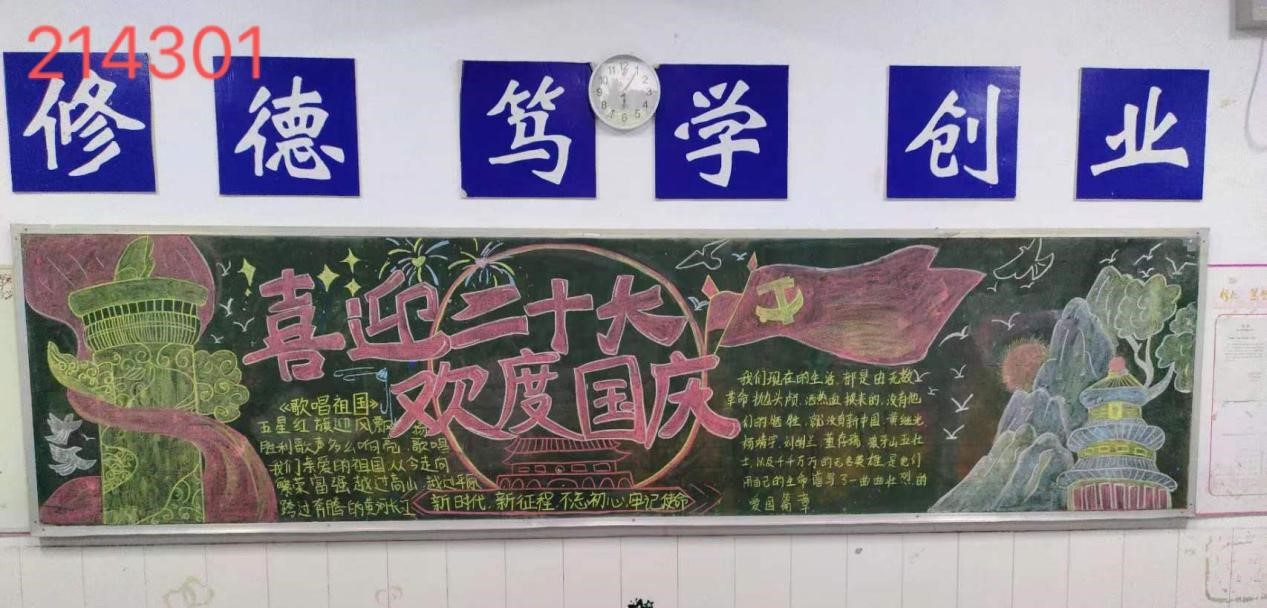 214301
修 德 笃 学 创 业
喜迎二十大
欢度国庆
《歌唱祖国》
五星红旗迎风飘扬
胜利歌声多么响亮,歌唱
我们亲爱的祖国从今走向
繁荣富强越过高山,越过平原
跨过奔腾的黄河长江
新时代,新征程,不忘初心,牢记使命
我们现在的生活,都是由无数
革命抛头颅,洒热血换来的,没有他
们的牺牲,就没有新中国,黄继光
杨靖宇,刘胡兰,董存瑞,狼牙山五壮
士,以及千千万万的无名英雄,是他们
用自己的生命谱写了一曲曲壮烈的
爱国篇章